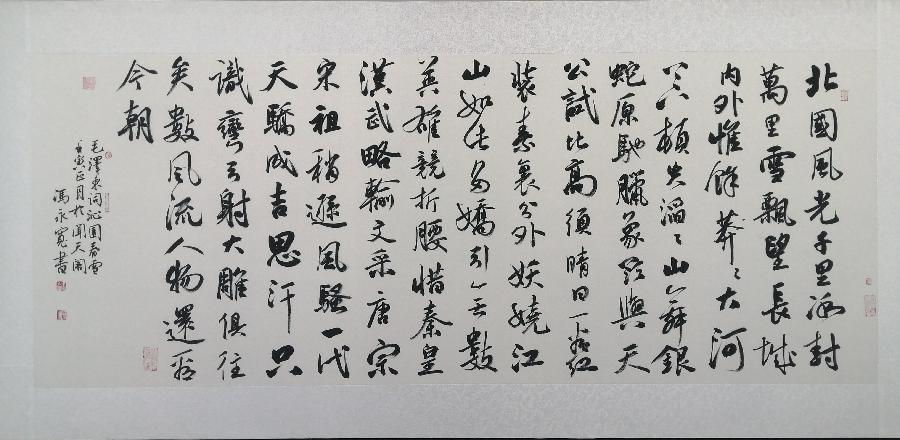 北國風光千里冰封
萬里雪飄望長城
内外惟餘莽〻大河
上下頓失滔〻山舞銀
蛇原馳臘象欲與天
公試比高須晴日看紅
裝素裹分外妖嬈江
山如此多嬌引無數
英雄競折腰惜秦皇
漢武略輸文采唐宗
宋祖稍遜風騷一代
天驕成吉思汗只
識彎弓射大雕俱往
矣數風流人物還看
今朝
毛澤東詞沁園春雪
壬寅正月於聞天閣
馮永寬書